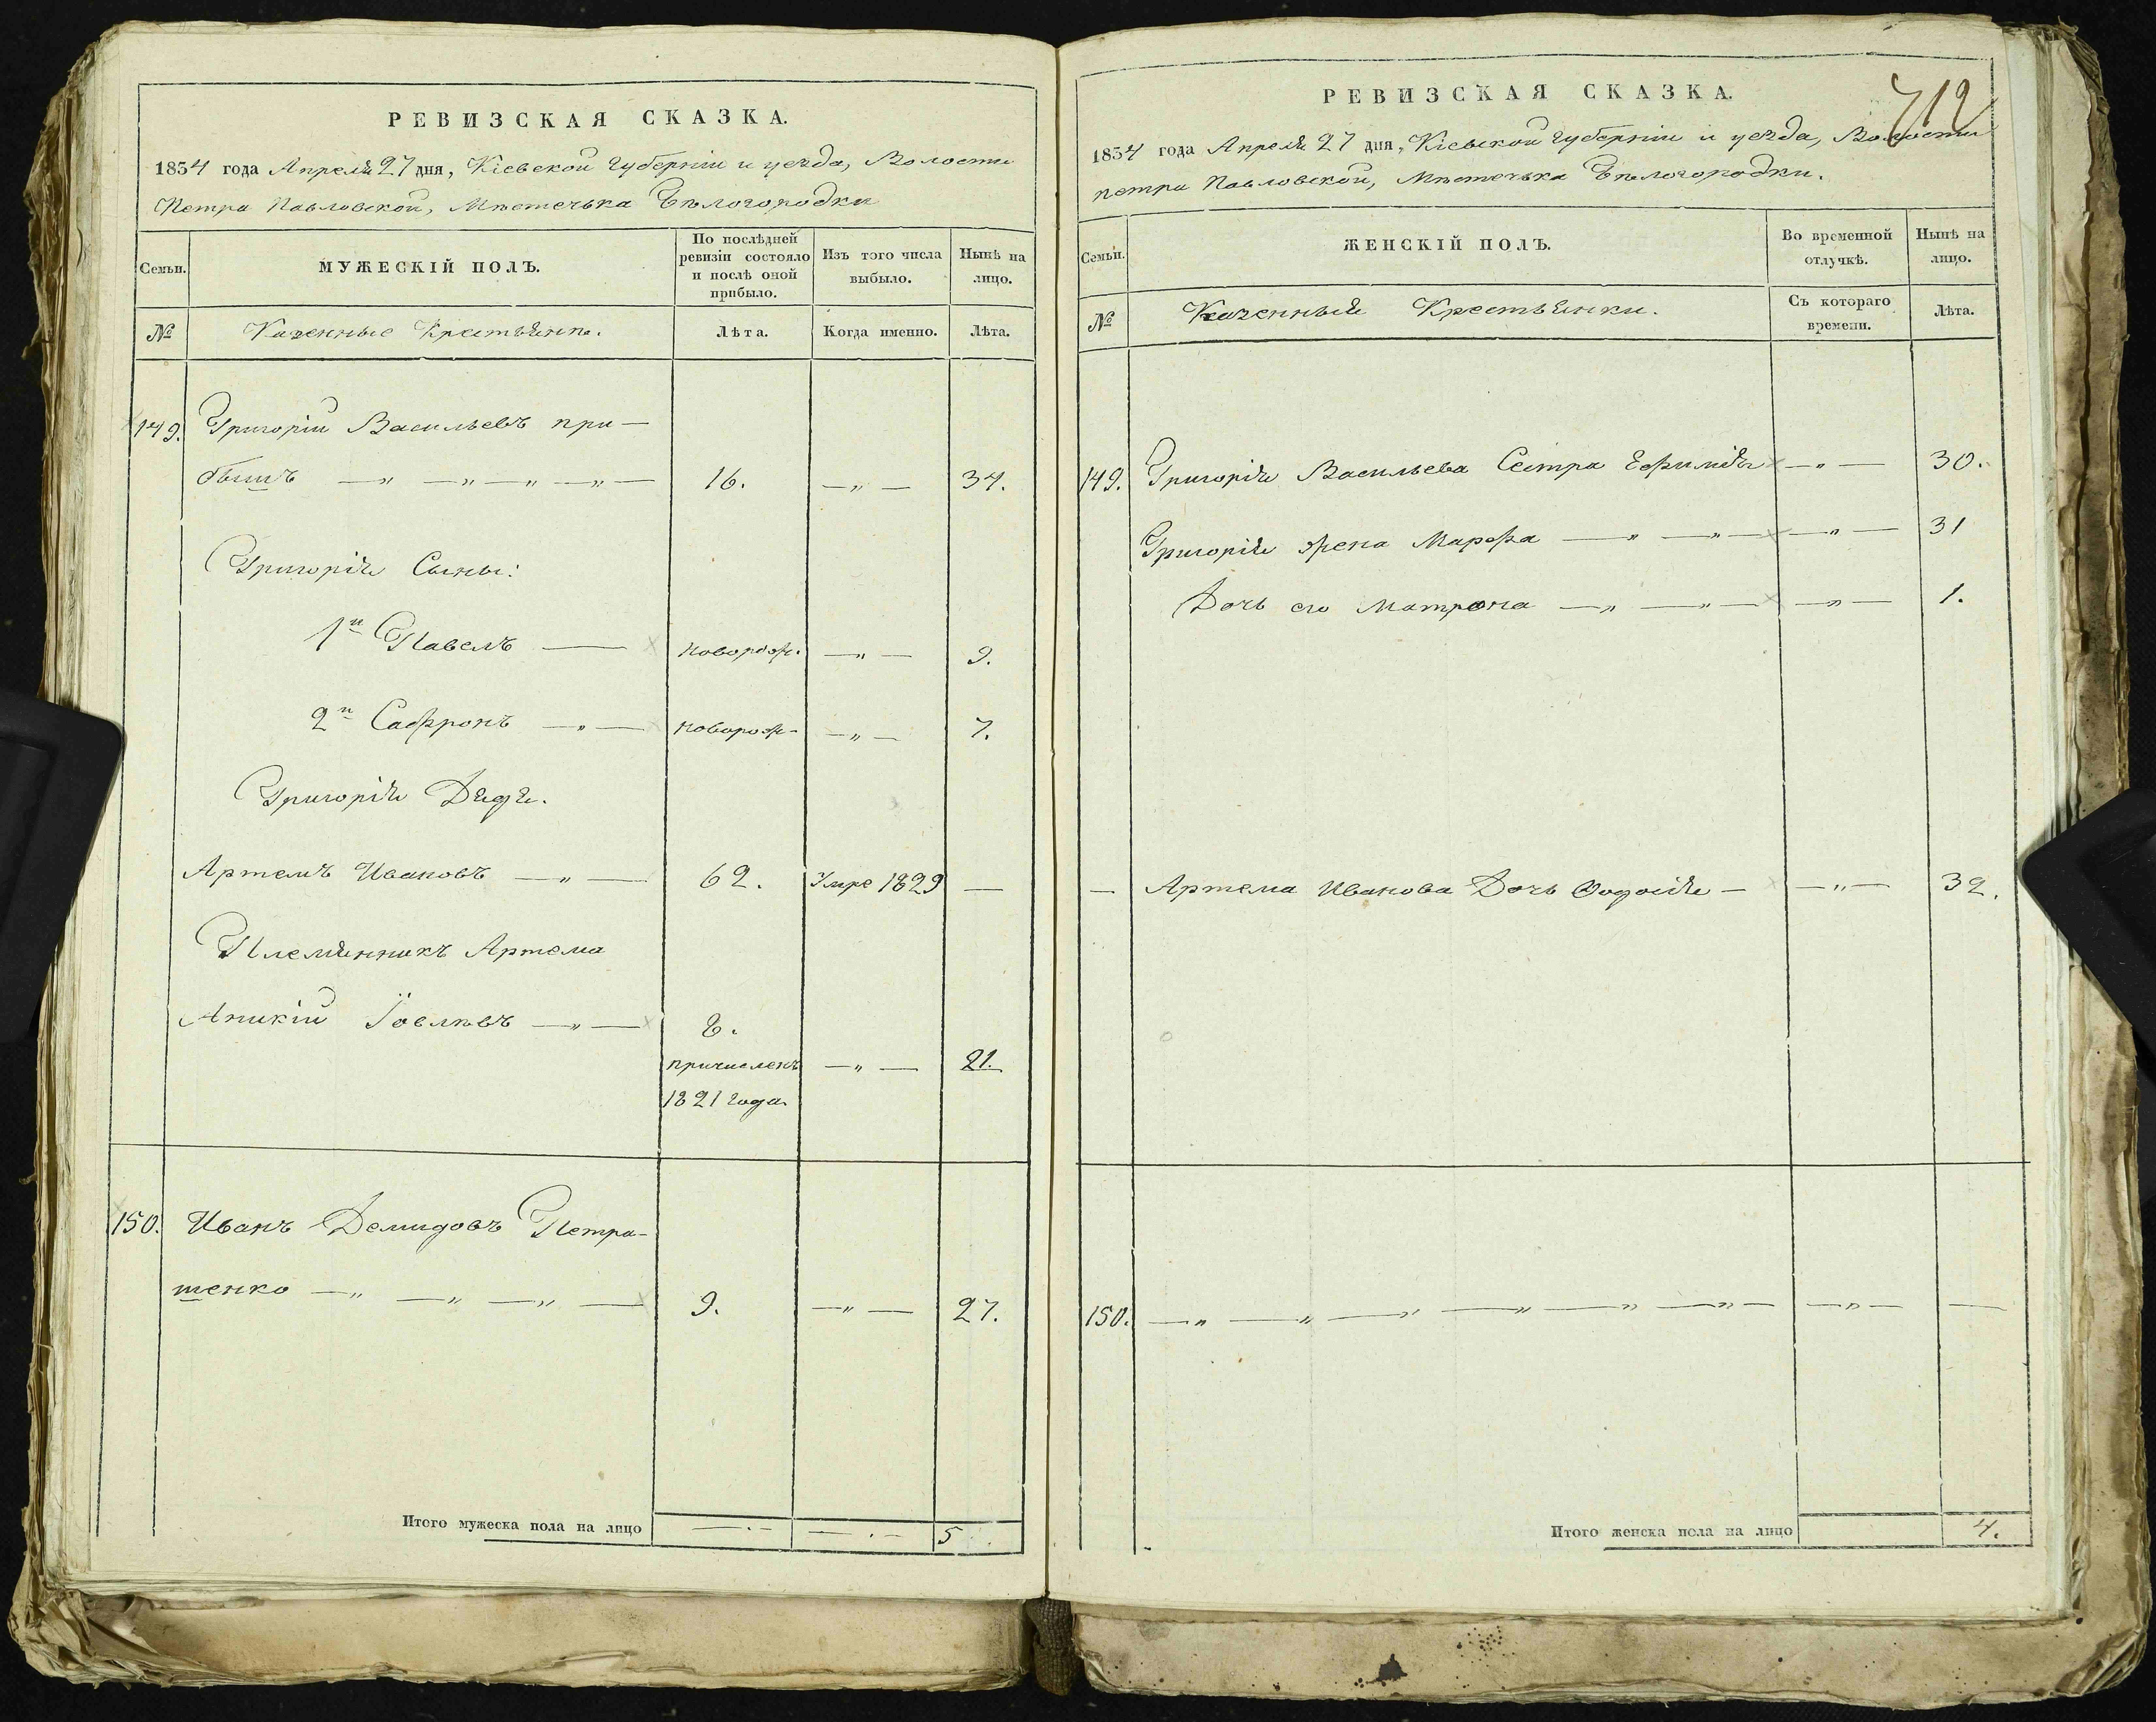 РЕВИЗСКАЯ СКАЗКА.
1834 года Апреля 27 дня, Кіевской Губерніи и уезда, Волости
Петра Павловской, Мѣстечька Бѣлогородки
Семьи.
МУЖЕСКІЙ ПОЛЪ.
По послѣдней ревизіи состояло и послѣ оной прибыло.
Изъ того числа выбыло.
Нынѣ на лицо.
№
Казенные Крестьяне.
Лѣта.
Когда именно.
Лѣта.
149. Григорій Васильевъ при-
бышъ — " — " — " — " — 16. — " — 34.
Григорія Сыны:
1й Павелъ — новорож. — " — 9.
2й Сафронъ — " — новорож- — " — 7.
Григорія Дядя.
Артемъ Ивановъ — " — 62. Умре 1829 —
Племянникъ Артема
Аникій Іовлевъ — " — 8.
причисленъ — " — 21.
1821 года.
150. Иванъ Демидовъ Петра-
шенко — " — " — " — 9. — " — 27.
Итого мужеска пола на лицо — . - — . - 5
712
РЕВИЗСКАЯ СКАЗКА.
1834 года Апреля 27 дня, Кіевской Губерніи и уезда, Волости
петра Павловской, Мѣстечька Бѣлогородки.
Семьи.
ЖЕНСКІЙ ПОЛЪ.
Во временной отлучкѣ.
Нынѣ на лицо.
№
Казенныя Крестьянки.
Съ котораго времени.
Лѣта.
149. Григорія Васильева Сестра Ефимія — " — 30.
Григорія жена Марфа — " — " — — " — 31
Дочь его Матрона — " — " — — " — 1.
— Артема Иванова Дочь Феодосія — — " — 32.
150. — " — " — " — " — " — " — — " — —
Итого женска пола на лицо 4.